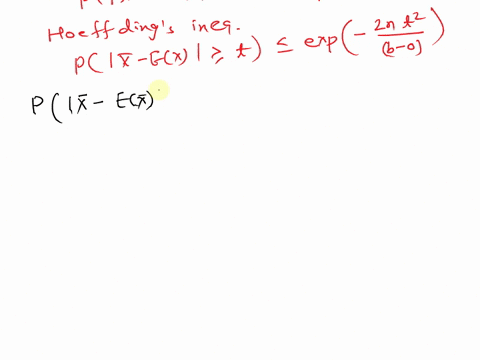 Hoeffding's ineq.
P( |x̄ - E(x) | ≥ t) ≤ exp(- 2n t² / (b-0))
P( |x̄ - E(x̄)